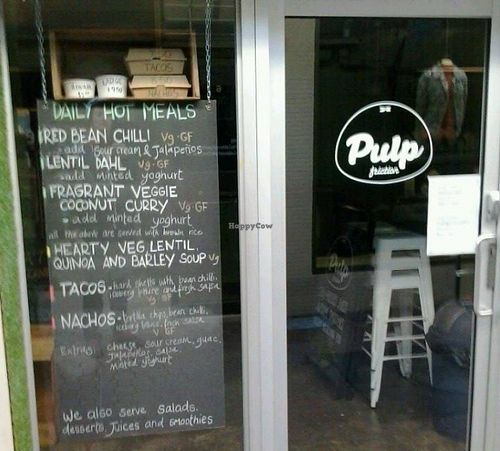 TACOS
NACHOS
DAILY HOT MEALS
RED BEAN CHILLI Vg·GF
- add sour cream & jalapeños
LENTIL DAHL Vg·GF
- add minted yoghurt
FRAGRANT VEGGIE
COCONUT CURRY Vg·GF
• add minted yoghurt
all the above are served with brown rice
HEARTY VEG, LENTIL,
QUINOA AND BARLEY SOUP Vg
TACOS - hard shells with bean chilli,
iceberg lettuce and fresh salsa
V GF
NACHOS - tortilla chips, bean chilli,
iceberg lettuce, fresh salsa
V GF
Extras: cheese, sour cream, guac,
jalapeños, salsa,
minted yoghurt
We also serve salads,
desserts, juices and smoothies
Pulp
kitchen
Pulp
HappyCow